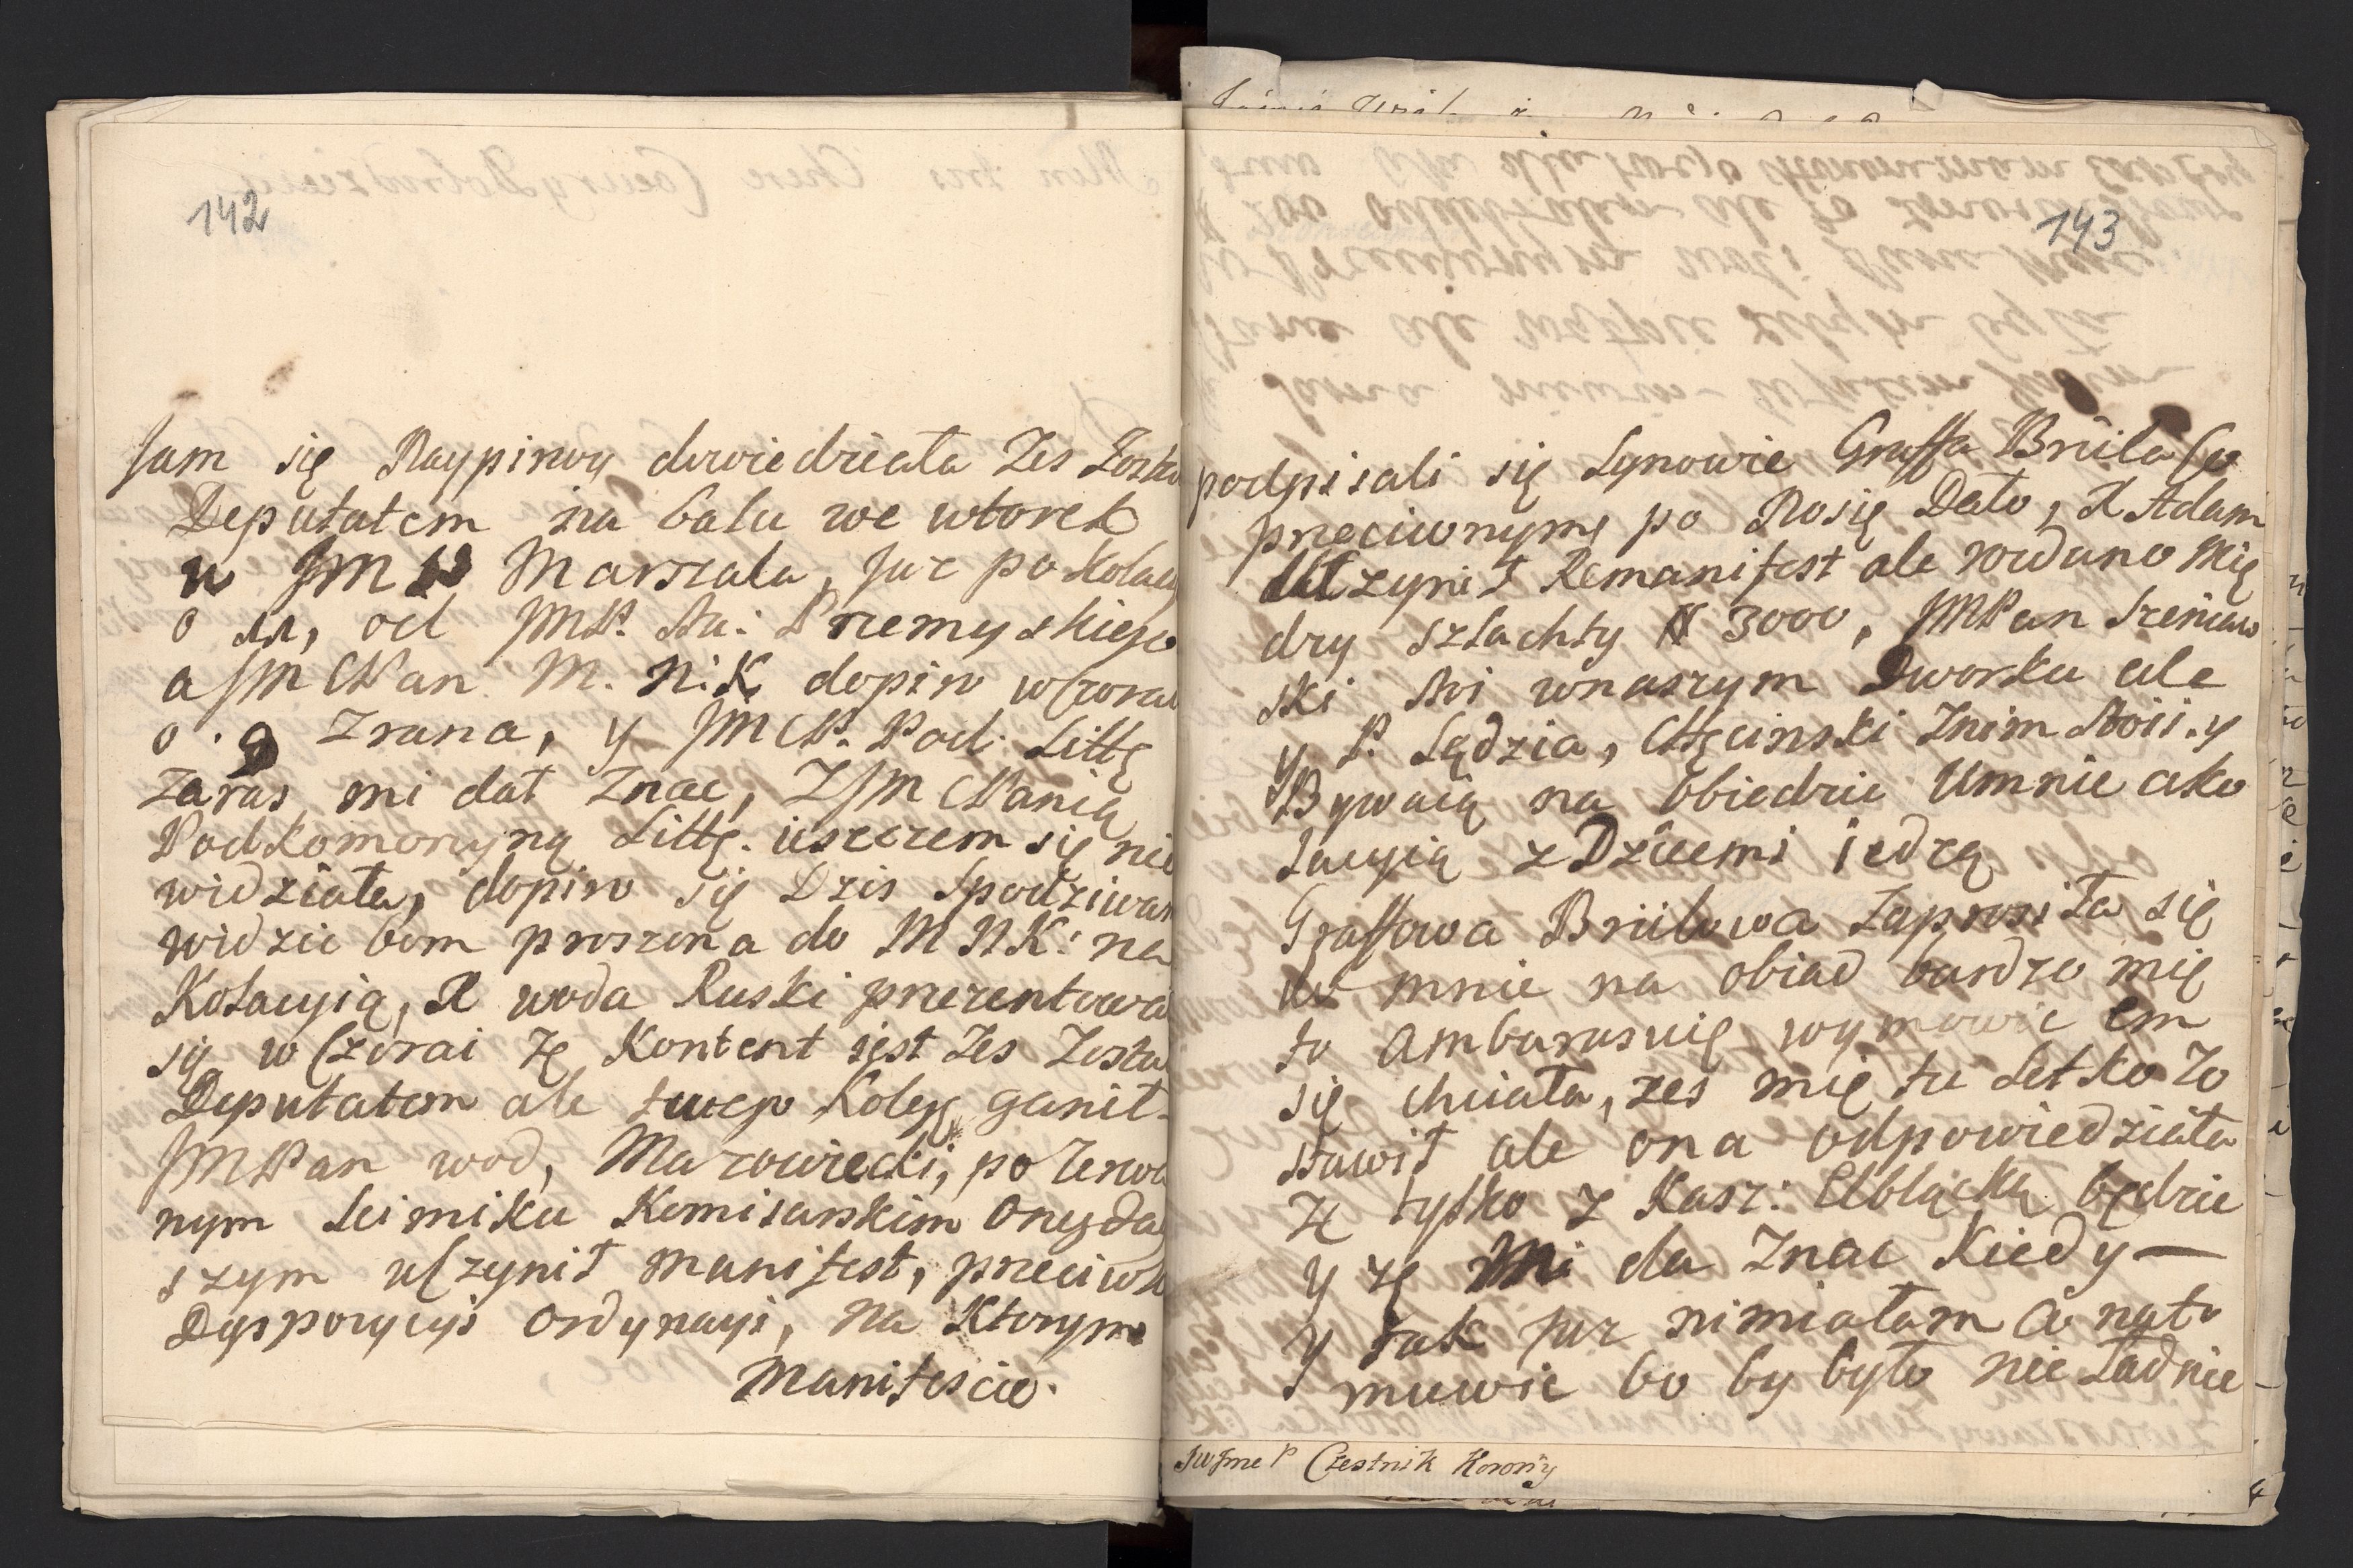 142
Jam się Naypirwy dowiedziała Zes Zosta
Deputatem na balu we wtorek
u JM Marszala, Juz po Kolacy
o 11, od JMP. Sta: Przemyskiego
a JMCPan M. N. K. dopiro wczora
o . 9 Zrana, y JMCP. Pod. Littę
Zaras mi dał Znac, Z JMCPanią
Podkomorzyną Littę. ieszczem się nie
widziała, dopiro się Dzis Spodziwam
widzie bom proszona do M N K: na
Kolacyią, X woda Ruski prezentowa
się wczorai Zę Kontent iest Zes Zosta
Deputatem ale twego Kolegę ganił
JMPan wod, Mazowiecki, po Zerwa
nym Seimiku Komisarskim Onegda
szym uczynił manifest, przeciwko
Dyspozycyi Ordynacyi, na Ktorym
Manifescie.
143
podpisali się Synowie Graffa Brüla Co
przeciwnymę po Rosię Dało, X Adam
uczynił Remanifest ale rozdano Mię
dzy szlachty # 3000, JMPan Sreniaw
ski stoi wnaszym Dworku ale
y P. Sędzia, Chęcinski Znim Stoii. y
Bywaią na Obiedzie Umnie a ko
lacyią z Dziecmi iedzą
Graffowa Brülowa Zaprosiła się
do mnie na obiad bardzo mię
to Ambarasuię wymowic em
się chciała, zes mię tu letko Zo
stawił ale ona odpowiedziała
Zę tylko z Kasz: Elblącką będzie
y zę Mi da Znac Kiedy —
y Tak juz nimiałam Co nato
muwic bo by było nie Ładnie
JwJme P Czestnik Korony